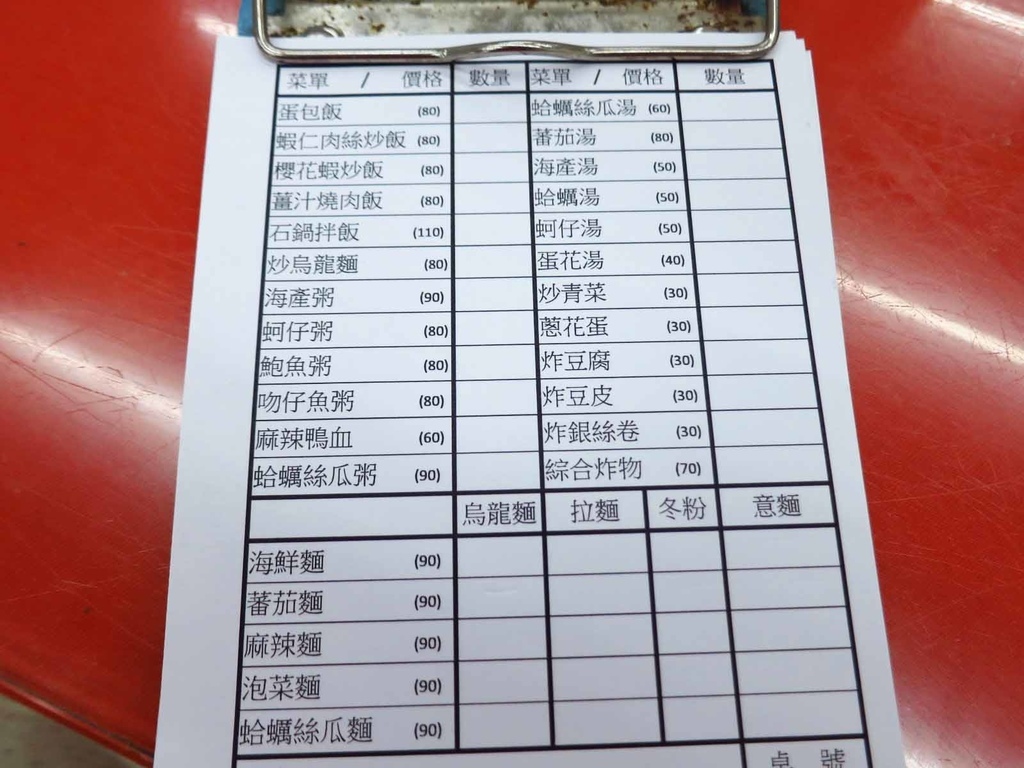 菜單 / 價格 數量 菜單 / 價格 數量
蛋包飯 (80) 蛤蠣絲瓜湯 (60)
蝦仁肉絲炒飯 (80) 蕃茄湯 (80)
櫻花蝦炒飯 (80) 海產湯 (50)
薑汁燒肉飯 (80) 蛤蠣湯 (50)
石鍋拌飯 (110) 蚵仔湯 (50)
炒烏龍麵 (80) 蛋花湯 (40)
海產粥 (90) 炒青菜 (30)
蚵仔粥 (80) 蔥花蛋 (30)
鮑魚粥 (80) 炸豆腐 (30)
吻仔魚粥 (80) 炸豆皮 (30)
麻辣鴨血 (60) 炸銀絲卷 (30)
蛤蠣絲瓜粥 (90) 綜合炸物 (70)
烏龍麵 拉麵 冬粉 意麵
海鮮麵 (90)
蕃茄麵 (90)
麻辣麵 (90)
泡菜麵 (90)
蛤蠣絲瓜麵 (90)
桌 號